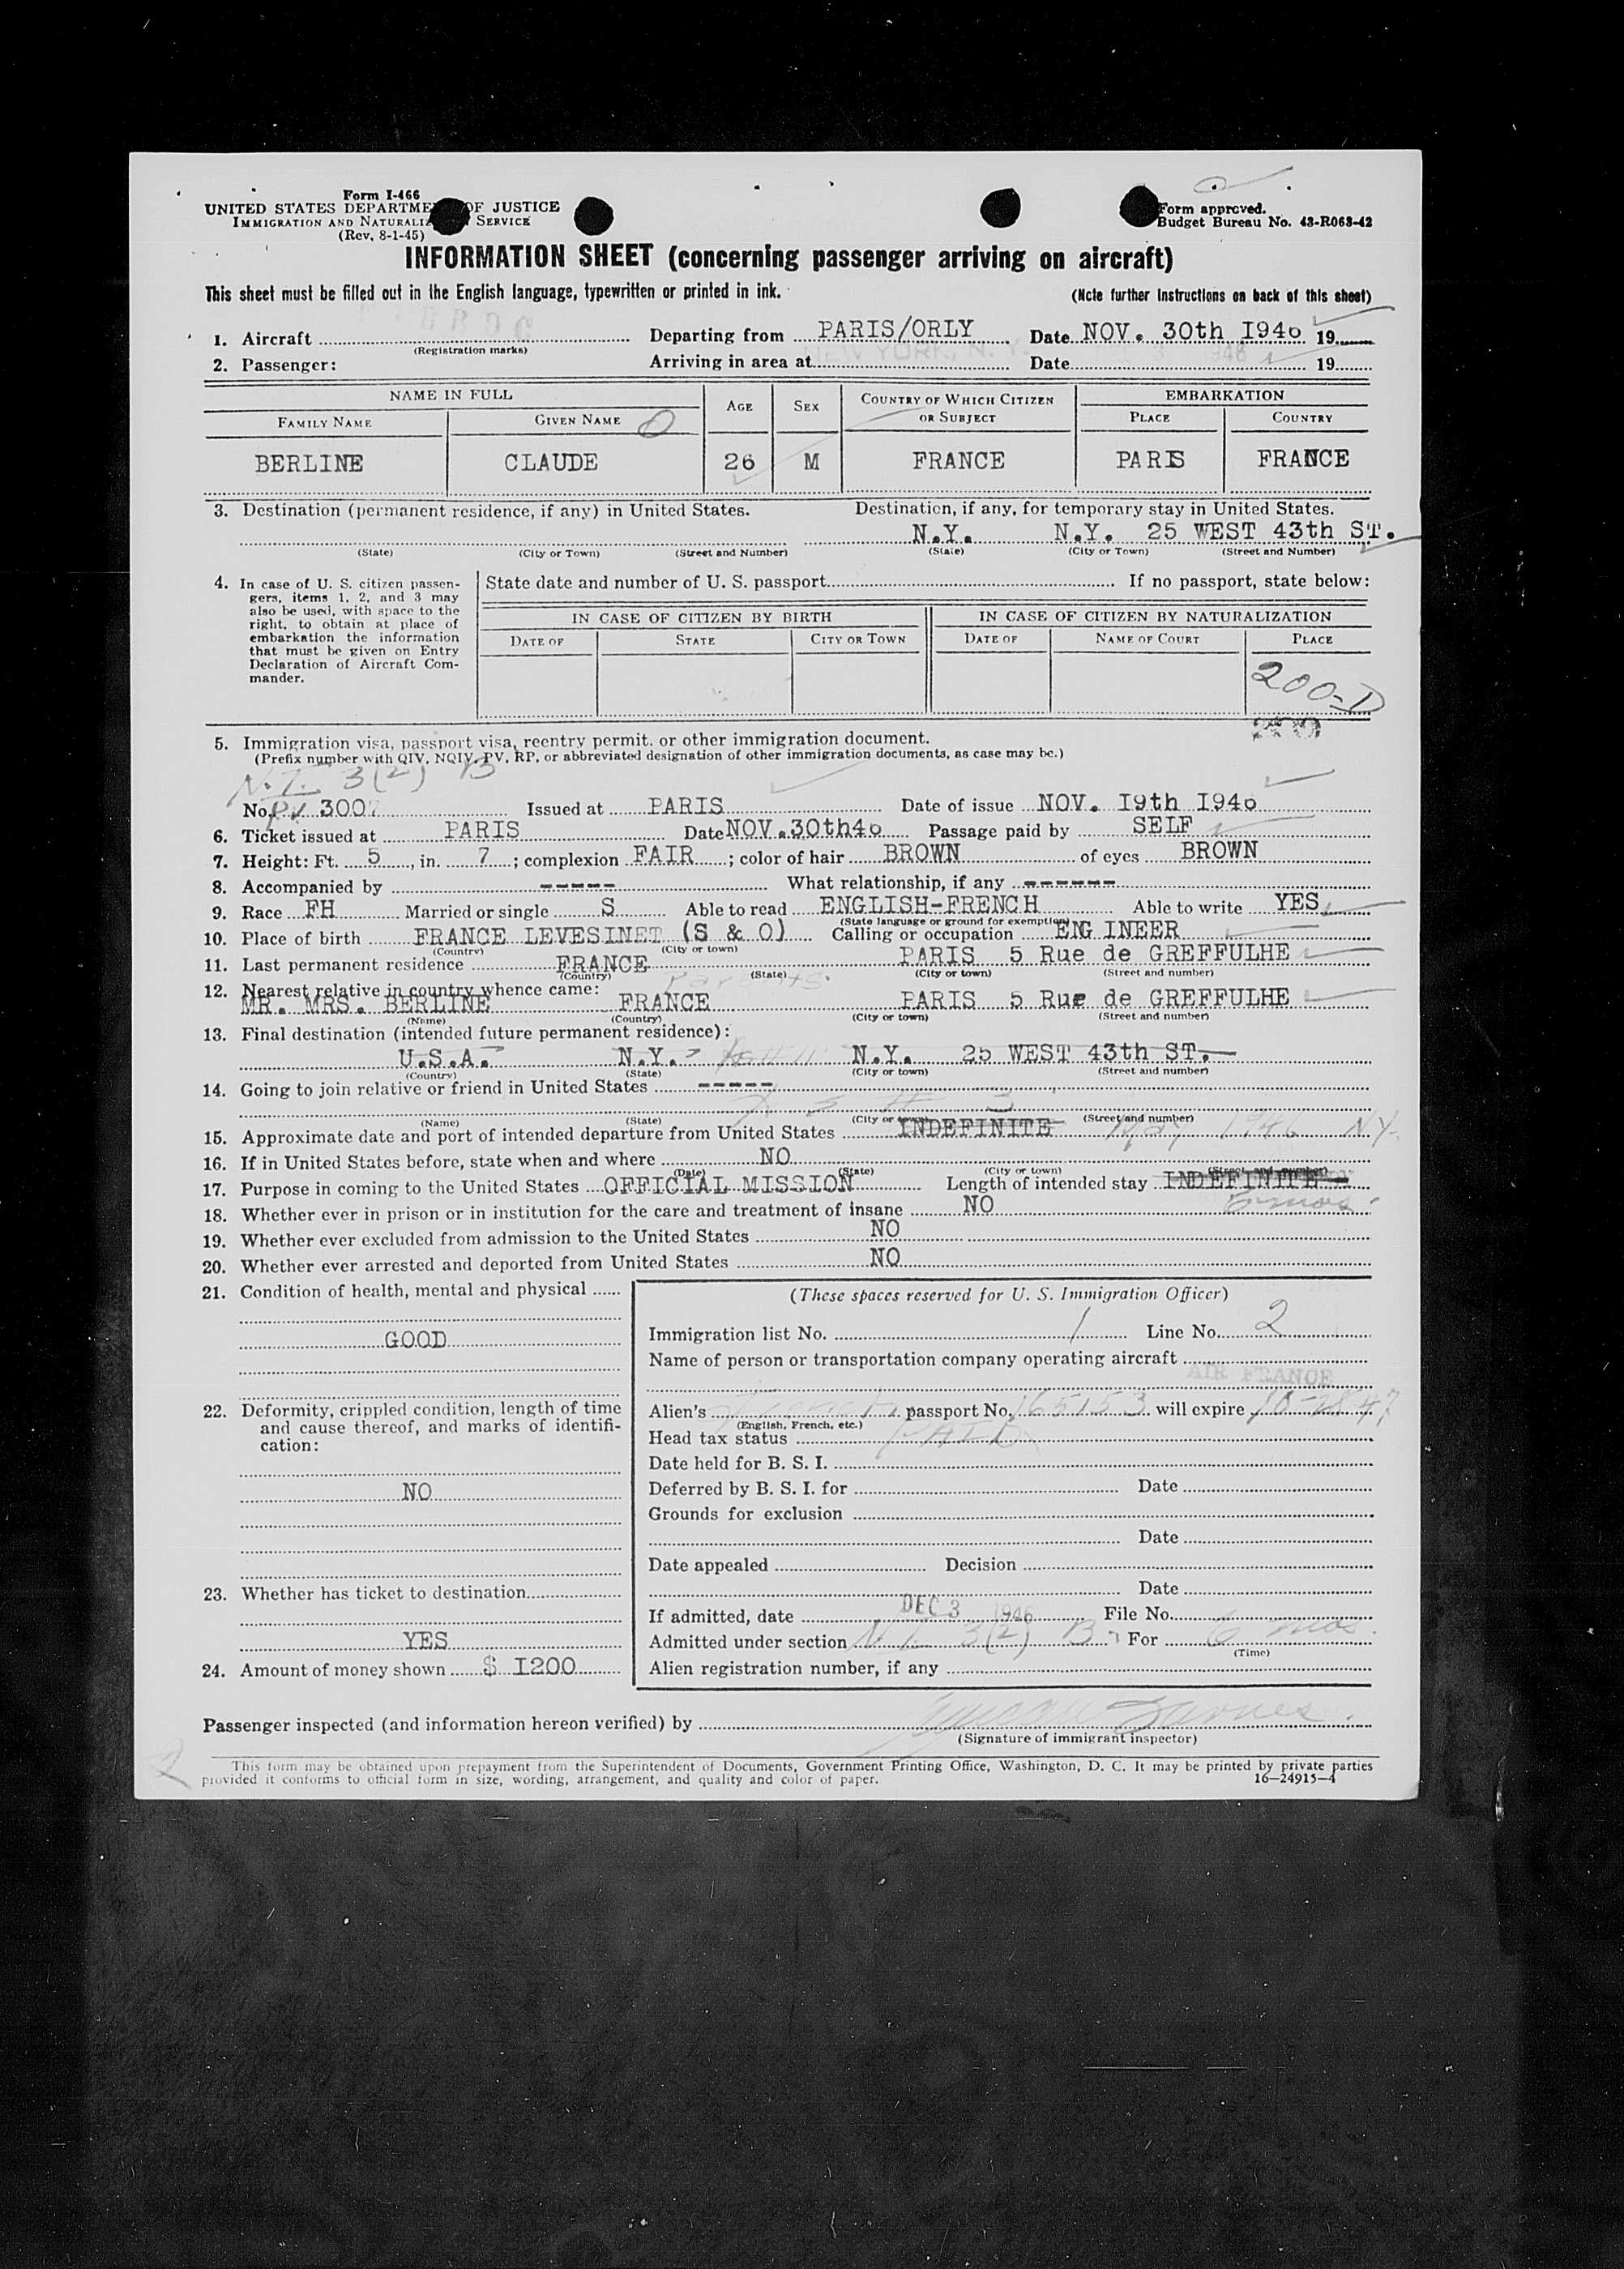 Form I-466
UNITED STATES DEPARTMENT OF JUSTICE
IMMIGRATION AND NATURALIZATION SERVICE
(Rev. 8-1-45)
Form approved.
Budget Bureau No. 43-R063-42
INFORMATION SHEET (concerning passenger arriving on aircraft)
This sheet must be filled out in the English language, typewritten or printed in ink. (Note further instructions on back of this sheet)
1. Aircraft Departing from PARIS/ORLY Date NOV. 30th I946 19
(Registration marks)
2. Passenger: Arriving in area at NEW YORK, N. Y. Date 1946 19
NAME IN FULL AGE SEX COUNTRY OF WHICH CITIZEN OR SUBJECT EMBARKATION
FAMILY NAME GIVEN NAME PLACE COUNTRY
BERLINE CLAUDE 26 M FRANCE PARIS FRANCE
3. Destination (permanent residence, if any) in United States. Destination, if any, for temporary stay in United States.
N.Y. N.Y. 25 WEST 43th ST.
(State) (City or Town) (Street and Number) (State) (City or Town) (Street and Number)
4. In case of U. S. citizen passengers, items 1, 2, and 3 may also be used, with space to the right, to obtain at place of embarkation the information that must be given on Entry Declaration of Aircraft Commander.
State date and number of U. S. passport If no passport, state below:
IN CASE OF CITIZEN BY BIRTH IN CASE OF CITIZEN BY NATURALIZATION
DATE OF STATE CITY OR TOWN DATE OF NAME OF COURT PLACE
200-D
200
5. Immigration visa, passport visa, reentry permit, or other immigration document.
(Prefix number with QIV, NQIV, PV, RP, or abbreviated designation of other immigration documents, as case may be.)
N.I. 3(2) B
No. PV 3007 Issued at PARIS Date of issue NOV. I9th I946
6. Ticket issued at PARIS Date NOV.30th46 Passage paid by SELF
7. Height: Ft. 5, in. 7; complexion FAIR; color of hair BROWN of eyes BROWN
8. Accompanied by ----- What relationship, if any ------
9. Race FH Married or single S Able to read ENGLISH-FRENCH Able to write YES
(State language or ground for exemption)
10. Place of birth FRANCE LEVESINET (S & O) Calling or occupation ENGINEER
(Country) (City or town)
11. Last permanent residence FRANCE PARIS 5 Rue de GREFFULHE
(Country) (State) (City or town) (Street and number)
12. Nearest relative in country whence came: Parents.
MR. MRS. BERLINE FRANCE PARIS 5 Rue de GREFFULHE
(Name) (Country) (City or town) (Street and number)
13. Final destination (intended future permanent residence):
U.S.A. N.Y. N.Y. 25 WEST 43th ST.
(Country) (State) (City or town) (Street and number)
14. Going to join relative or friend in United States -----
(Name) (State) (City or town) (Street and number)
15. Approximate date and port of intended departure from United States INDEFINITE May 1946 NY.
16. If in United States before, state when and where NO
(Date) (State) (City or town) (Street and number)
17. Purpose in coming to the United States OFFICIAL MISSION Length of intended stay INDEFINITE
6 mos.
18. Whether ever in prison or in institution for the care and treatment of insane NO
19. Whether ever excluded from admission to the United States NO
20. Whether ever arrested and deported from United States NO
21. Condition of health, mental and physical
GOOD
22. Deformity, crippled condition, length of time and cause thereof, and marks of identification:
NO
23. Whether has ticket to destination
YES
24. Amount of money shown $ I200
(These spaces reserved for U. S. Immigration Officer)
Immigration list No. 1 Line No. 2
Name of person or transportation company operating aircraft
AIR FRANCE
Alien's French passport No. 165153 will expire 10-28 47
(English, French, etc.)
Head tax status PAID
Date held for B. S. I.
Deferred by B. S. I. for Date
Grounds for exclusion
Date
Date appealed Decision
Date
If admitted, date DEC 3 1946 File No.
Admitted under section N.I. 3(2) B For 6 mos.
(Time)
Alien registration number, if any
Passenger inspected (and information hereon verified) by
(Signature of immigrant inspector)
This form may be obtained upon prepayment from the Superintendent of Documents, Government Printing Office, Washington, D. C. It may be printed by private parties
provided it conforms to official form in size, wording, arrangement, and quality and color of paper. 16—24915-4